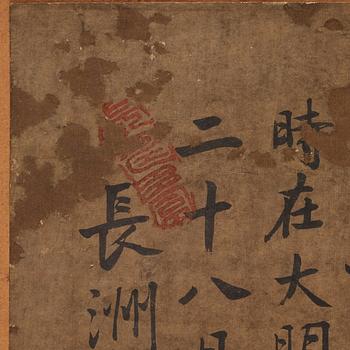 時在大明
二十八
長洲